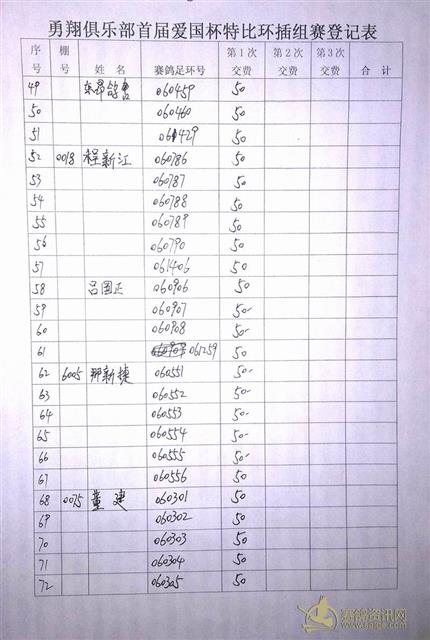 勇翔俱乐部首届爱国杯特比环插组赛登记表
序号 棚号 姓 名 赛鸽足环号 第1次交费 第2次交费 第3次交费 合 计
49 东昂鸽舍 060459 50
50 060460 50
51 061429 50
52 0018 程新江 060786 50
53 060787 50
54 060788 50
55 060789 50
56 060790 50
57 061406 50
58 吕国正 060906 50
59 060907 50-
60 060908 50-
61 061259 50
62 6005 邢新捷 060551 50
63 060552 50-
64 060553 50
65 060554 50-
66 060555 50-
67 060556 50
68 0075 董建 060301 50
69 060302 50
70 060303 50
71 060304 50
72 060305 50
赛鸽资讯网
www.saige.com